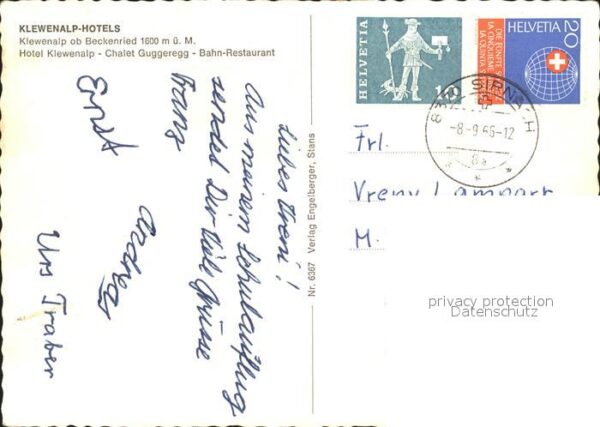 KLEWENALP-HOTELS
Klewenalp ob Beckenried 1600 m ü. M.
Hotel Klewenalp - Chalet Guggeregg - Bahn-Restaurant
Liebes Vreni!
Aus meinem Schulausflug
sendet Dir viele Grüsse
Franz
Ernst
Andreas
Urs Traber
Nr. 6367 Verlag Engelberger, Stans
HELVETIA
10
DIE FÜNFTE
LA CINQUIEME
LA QUINTA
HELVETIA
20
SIRNACH
-8-9.66-12
8a
Frl.
Vreny Lampart
M.
privacy protection
Datenschutz